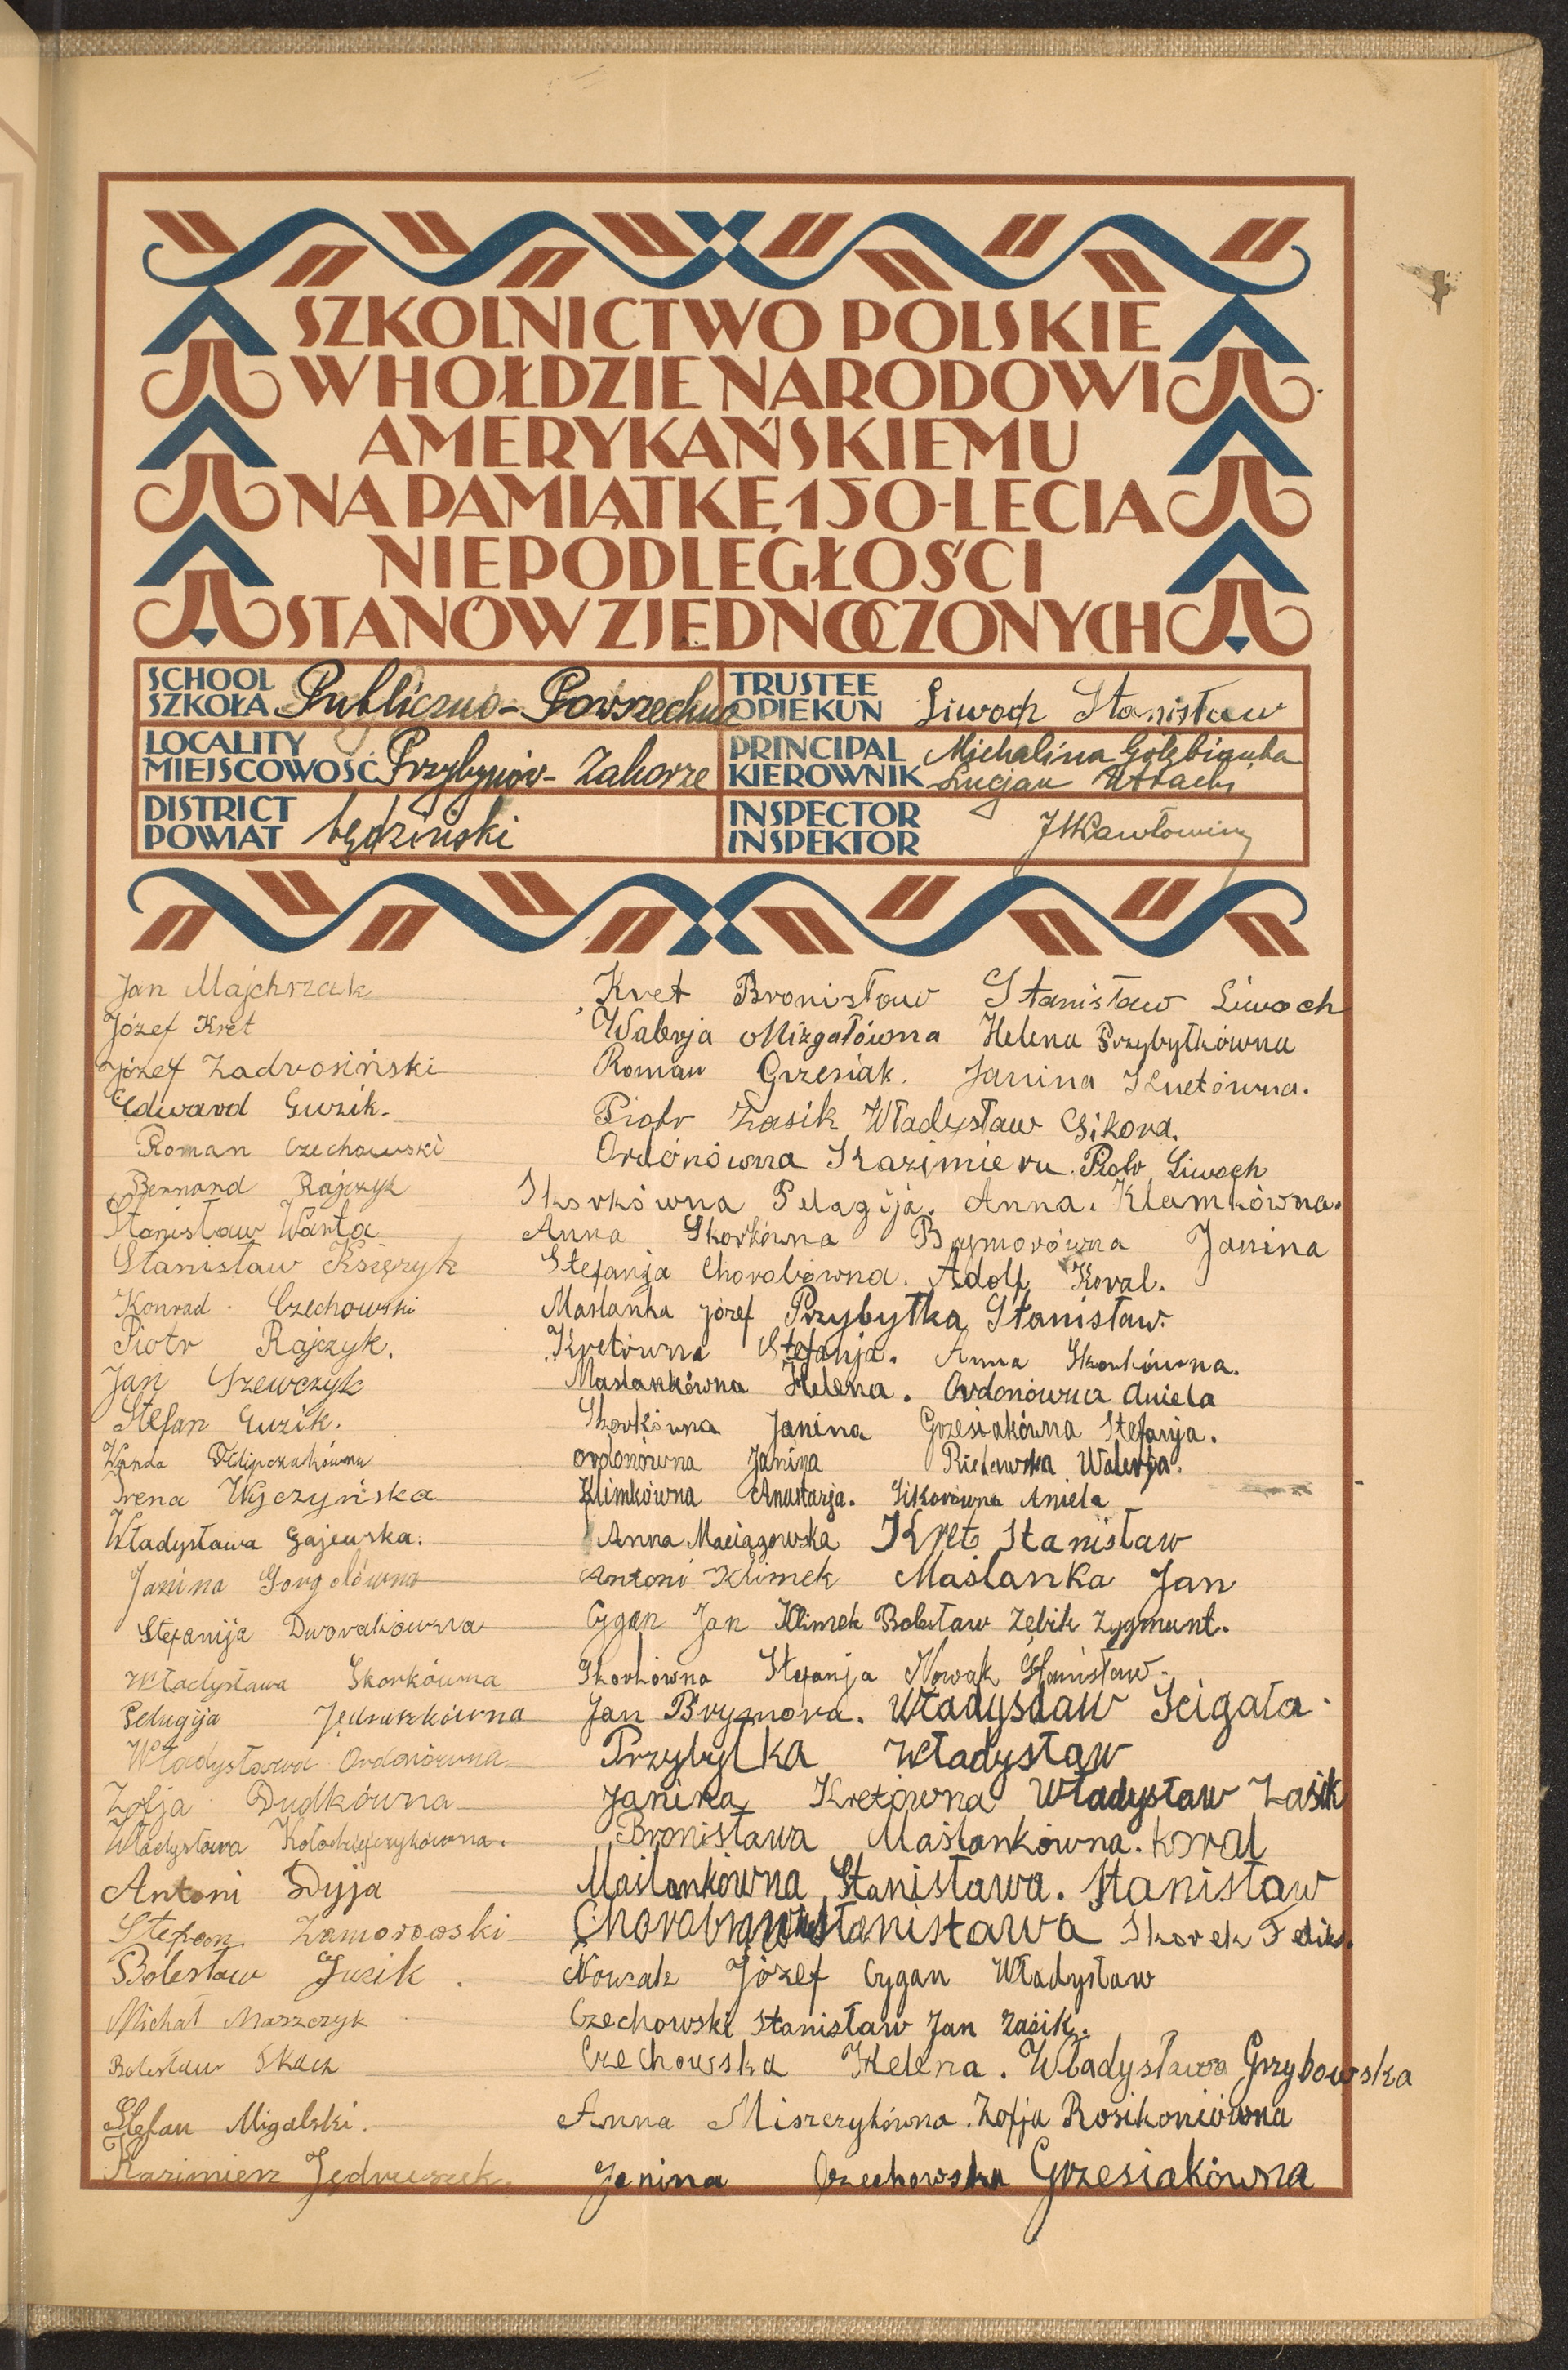 SZKOLNICTWO POLSKIE
W HOŁDZIE NARODOWI
AMERYKAŃSKIEMU
NA PAMIĄTKĘ 150-LECIA
NIEPODLEGŁOŚCI
STANÓW ZJEDNOCZONYCH
SCHOOL
SZKOŁA Publiczno-Powszechna
TRUSTEE
OPIEKUN Liwoch Stanisław
LOCALITY
MIEJSCOWOŚĆ Przybynów-Zaborze
PRINCIPAL Michalina Gołębianka
KIEROWNIK Lucjan
DISTRICT
POWIAT będziński
INSPECTOR
INSPEKTOR
Jan Majchrzak
Józef Kret
Józef Zadrosiński
Edward Guzik.
Roman Czechowski
Bernard Rajczyk
Stanisław Warta
Stanisław Księżyk
Konrad Czechowski
Piotr Rajczyk.
Jan Szewczyk
Stefan Guzik.
Wanda Filipczakówna
Irena Wyczyńska
Władysława Gajewska.
Janina Gorgolówna
Stefanija Dworakówna
Władysława Skorkówna
Pelagija Jędruszkówna
Władysława Ordonówna
Zofja Dudkówna
Władysława Kołodziejczykówna.
Antoni Dyja
Stefan Zamorowski
Bolesław Guzik.
Michał Maszczyk
Bolesław Skach
Stefan Migalski.
Kazimierz Jędruszek.
Kret Bronisław Stanisław Liwoch
Walerja Mizgałówna Helena Przybyłkówna
Roman Grzesiak. Janina Knetówna.
Piotr Zasik Władysław Sikora.
Ordonówna Kazimiera. Piotr Liwoch
Skorkówna Pelagija. Anna. Klamkówna.
Anna Skorkówna Brymorówna Janina
Stefanja Chorobówna. Adolf Koral.
Maślanka Józef Przybyłka Stanisław.
Kretówna Stefanja. Anna Skorkówna.
Maslankówna Helena. Ordonówna Aniela
Skorkówna Janina Grzesiakówna Stefanja.
Ordonówna Janina Walerja.
Klimkówna Anastazja. Sikorówna Aniela
Anna Maciągowska Kret Stanisław
Antoni Klimek Maślanka Jan
Cygan Jan Klimek Bolesław Zębik Zygmunt.
Skorkówna Stefanja Nowak Stanisław.
Jan Brymora. Władysław Ścigała.
Przybyłka Władysław
Janina Kretówna Władysław Zasik
Bronisława Maślankówna. Koral
Maślankówna Stanisława. Stanisław
Stanisława Skorek Feliks.
Nowak Józef Cygan Władysław
Czechowski Stanisław Jan Zasik.
Czechowska Helena. Władysława Grzybowska
Anna Miszczykówna. Zofja Rosikoniówna
Janina Czechowska Grzesiakówna